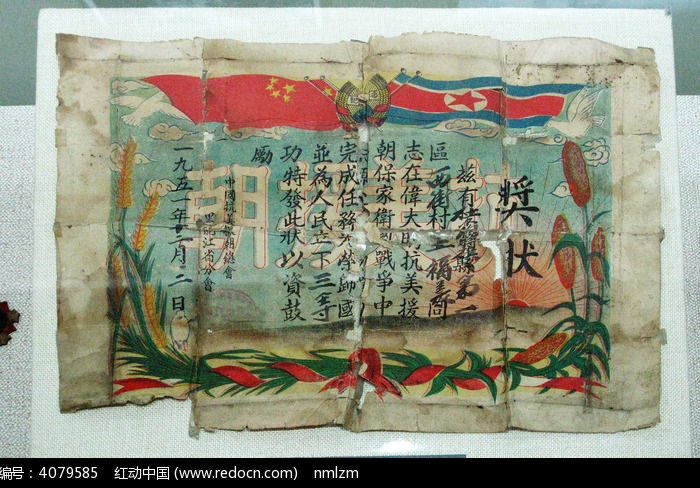 獎状
茲有
縣第一
區
村王
同
志在偉大的抗美援
朝保家衛國戰爭中
完成任務光榮歸國
並為人民立下三等
功特發此狀以資鼓
勵
中國抗美援朝總會
黑龍江省分會
一九五一年 月二日
编号：4079585 红动中国 (www.redocn.com) nmlzm